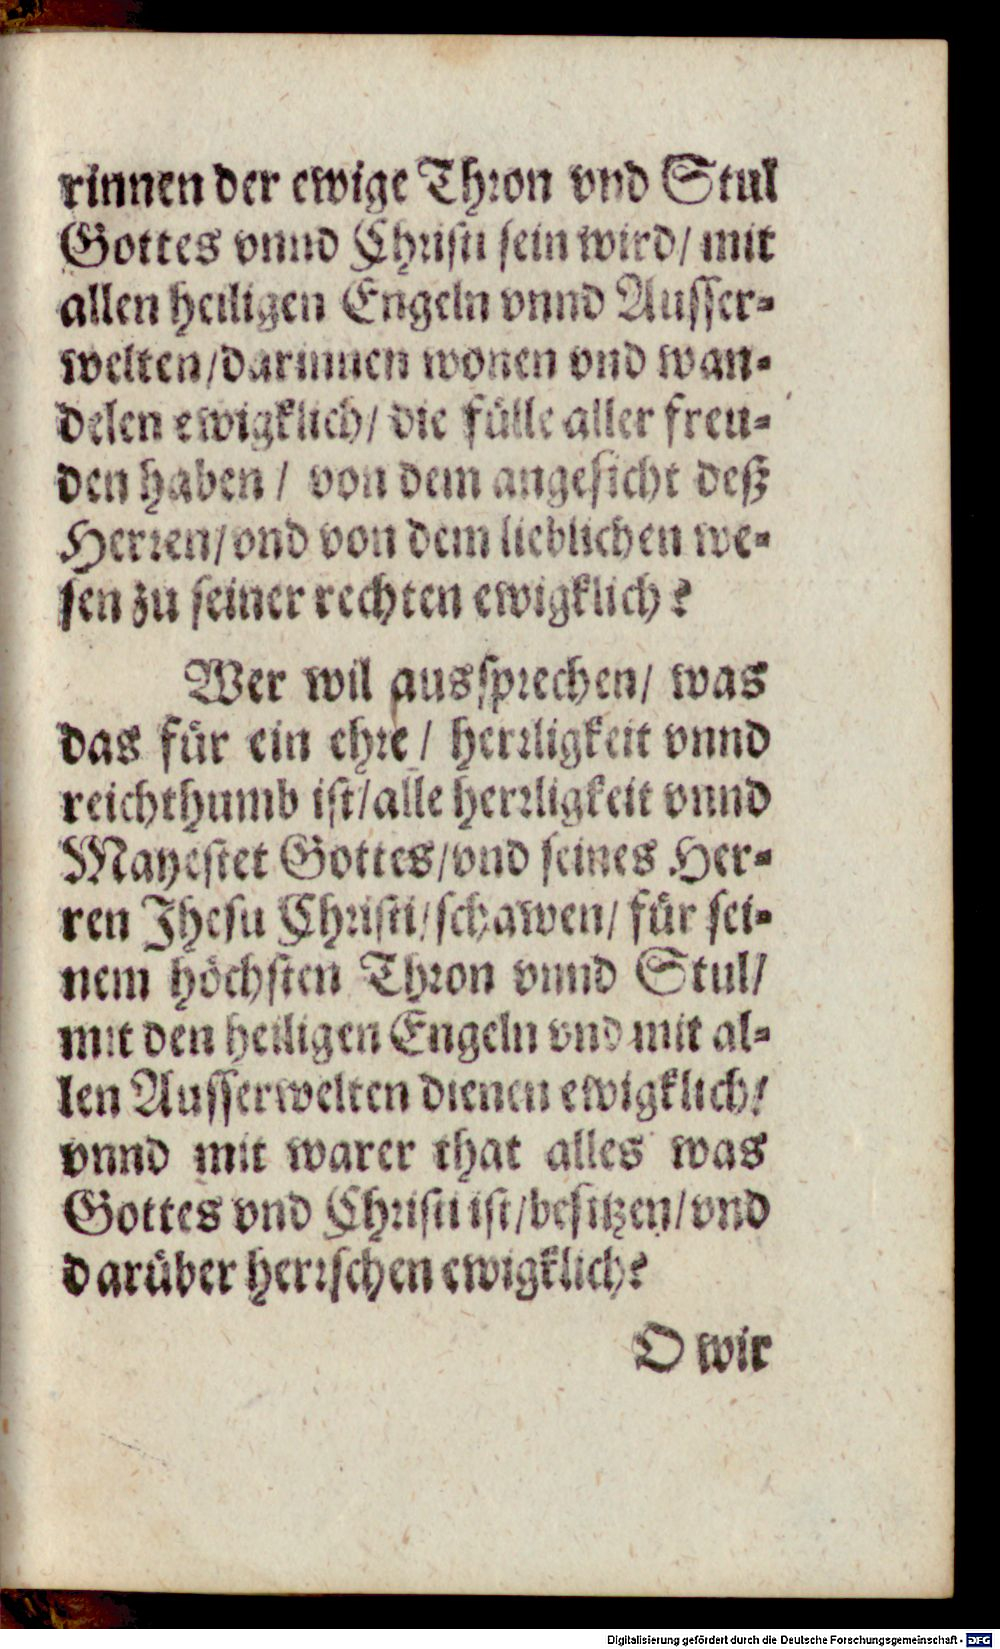 rinnen der ewige Thron vnd Stul
Gottes vnnd Christi sein wird/ mit
allen heiligen Engeln vnnd Ausser-
welten/darinnen wonen vnd wan-
delen ewigklich/ die fülle aller freu-
den haben / von dem angesicht deß
Herren/vnd von dem lieblichen we-
sen zu seiner rechten ewigklich?
Wer wil aussprechen/ was
das für ein ehre / herrligkeit vnnd
reichthumb ist/alle herrligkeit vnnd
Mayestet Gottes/vnd seines Her-
ren Jhesu Christi/schawen/ für sei-
nem höchsten Thron vnnd Stul/
mit den heiligen Engeln vnd mit al-
len Ausserwelten dienen ewigklich/
vnnd mit warer that alles was
Gottes vnd Christi ist/besitzen/vnd
darüber herrschen ewigklich?
O wir
Digitalisierung gefördert durch die Deutsche Forschungsgemeinschaft - DFG